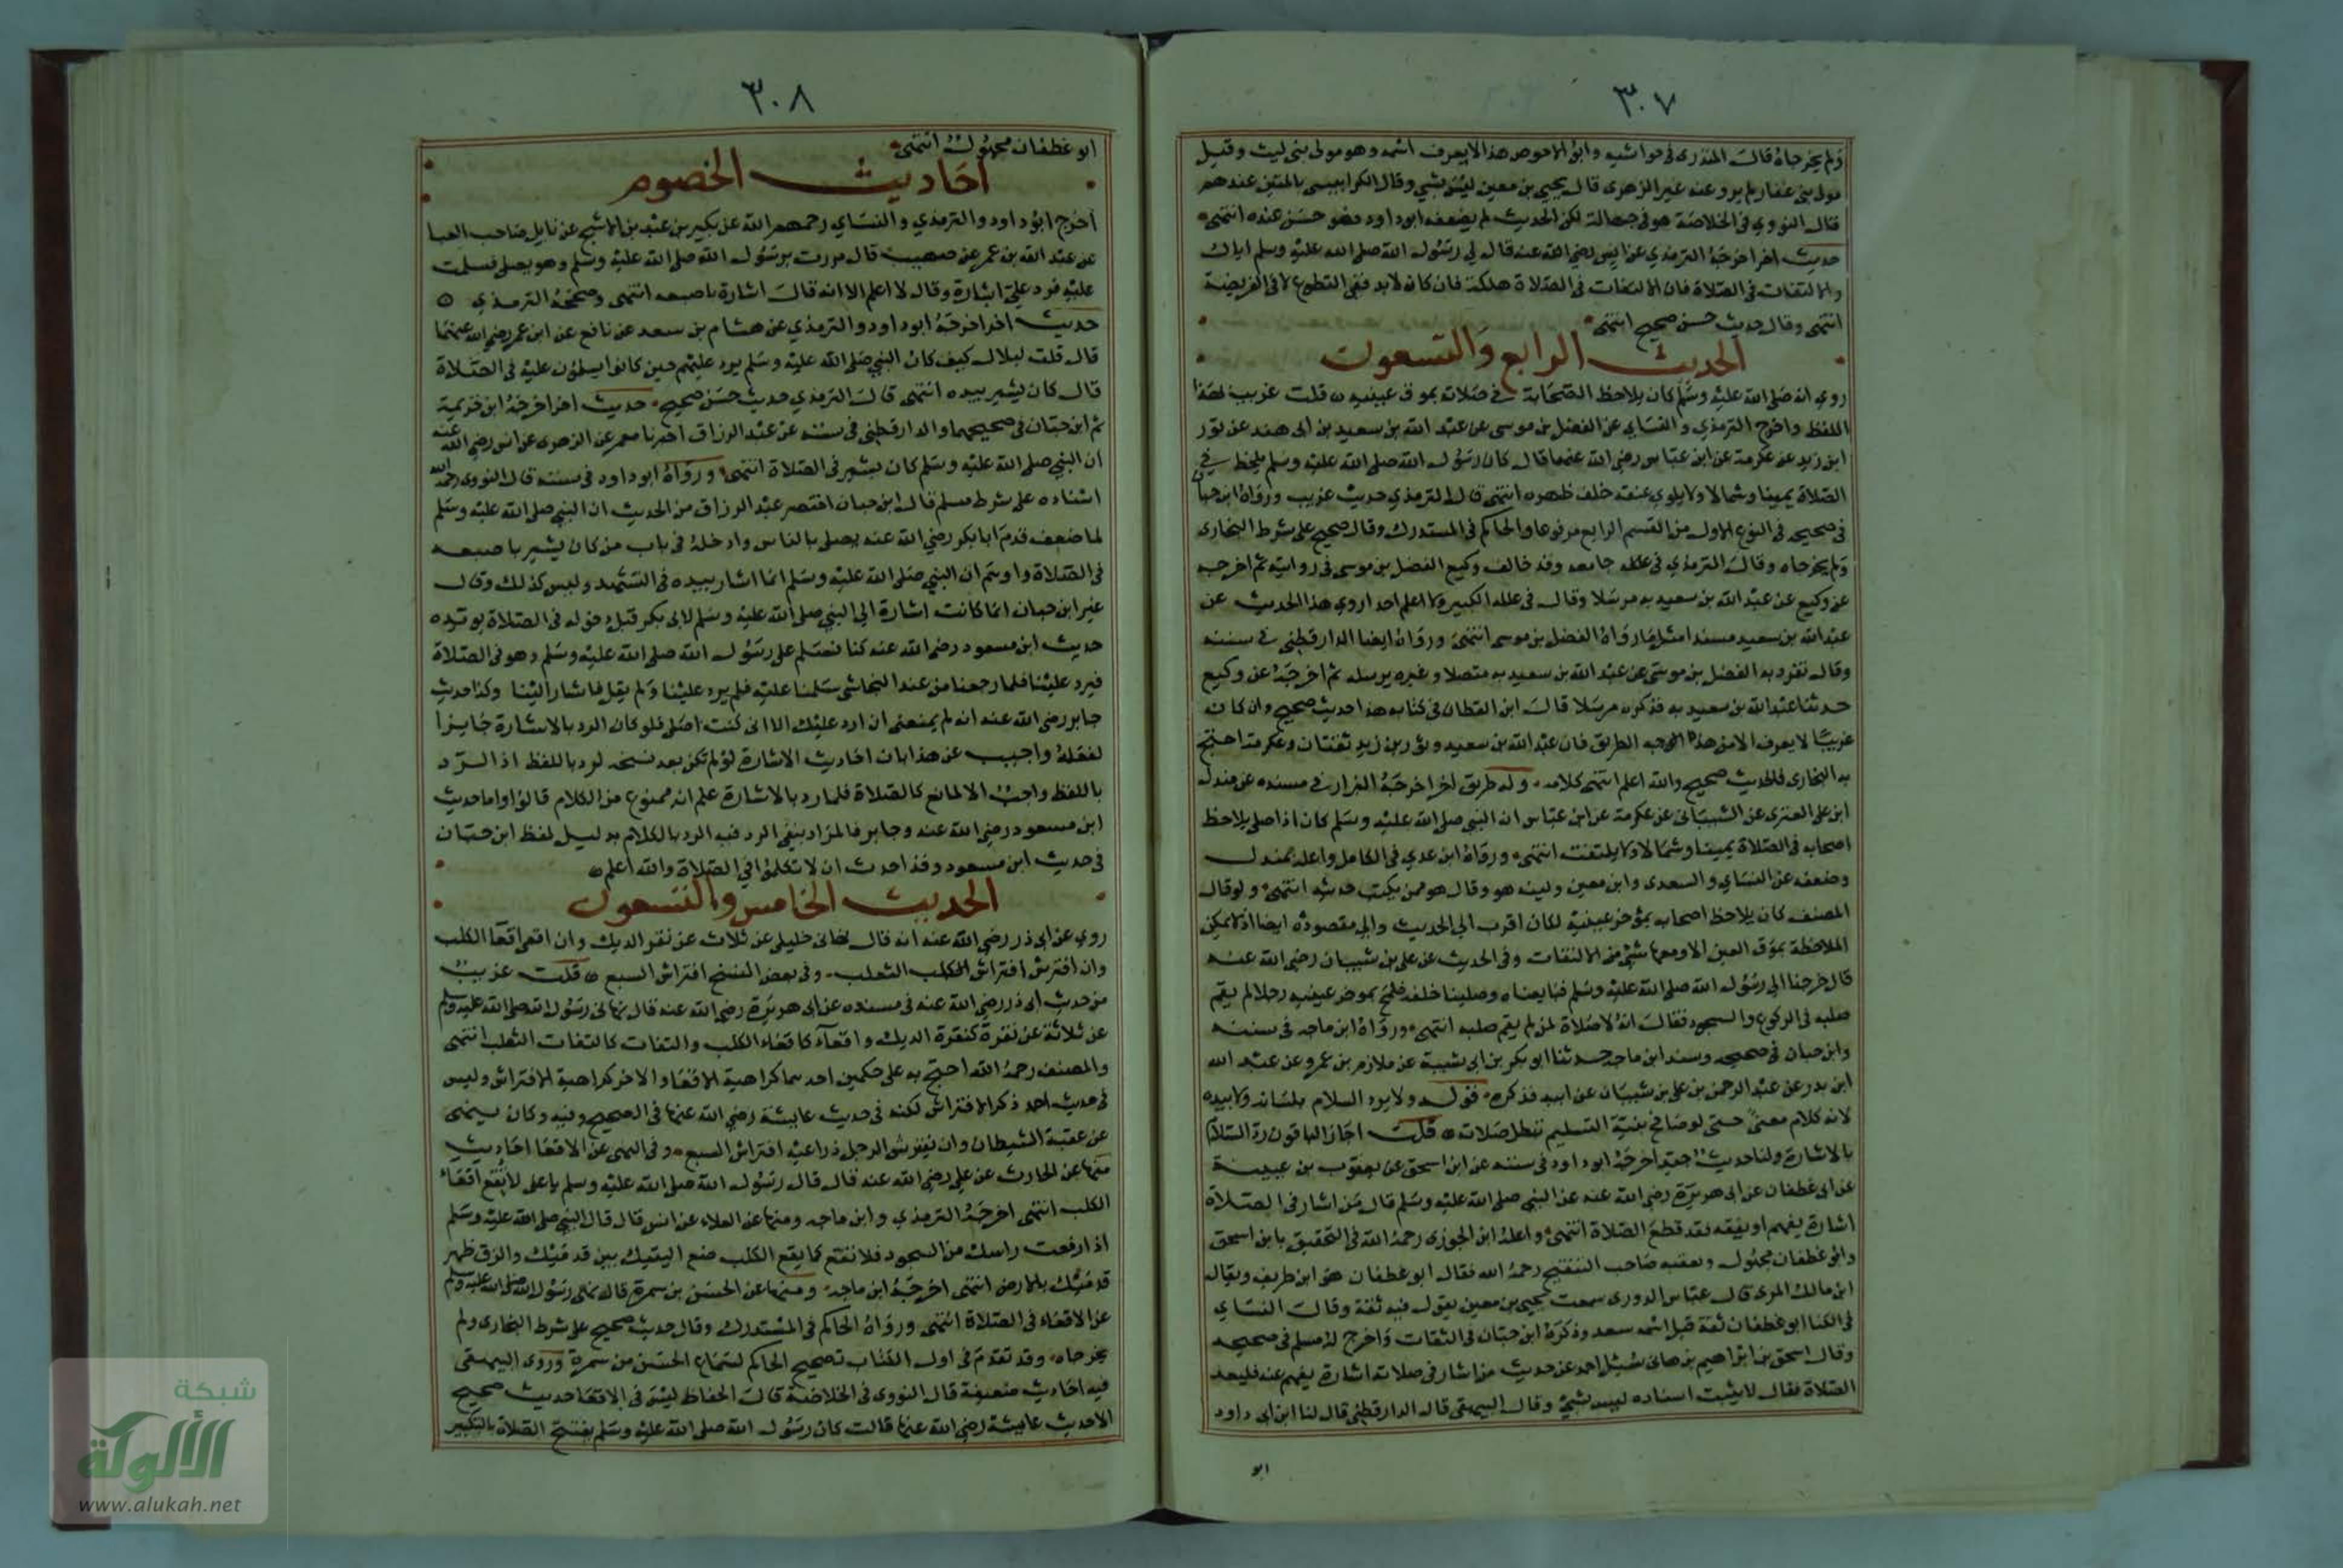 ٣٠٧
ولم يخرجاه قال المنذري في حواشيه وابو الاحوص هذا لا يعرف اسمه وهو مولى بني ليث وقيل
مولى بني غفار لم يرو عنه غير الزهري قال يحيى بن معين ليس بشي وقال الكرابيسي بالمتين عندهم
قال النووي في الخلاصة هو فيه جهالة لكن الحديث لم يضعفه ابو داود فهو حسن عنده انتهى
حديث اخر اخرجه الترمذي عن انس رضي الله عنه قال لي رسول الله صلى الله عليه وسلم اياك
والالتفات في الصلاة فان الالتفات في الصلاة هلكة فان كان لا بد ففي التطوع لا في الفريضة
انتهى وقال حديث حسن صحيح انتهى
الحديث الرابع والتسعون
روي انه صلى الله عليه وسلم كان يلاحظ الصحابة في صلاته بموق عينيه قلت غريب بهذا
اللفظ واخرج الترمذي والنساي عن الفضل بن موسى عن عبد الله بن سعيد بن ابي هند عن ثور
ابن زيد عن عكرمة عن ابن عباس رضي الله عنهما قال كان رسول الله صلى الله عليه وسلم يلحظ في
الصلاة يمينا وشمالا ولا يلوي عنقه خلف ظهره انتهى قال الترمذي حديث غريب ورواه ابن حبان
في صحيحه في النوع الاول من القسم الرابع مرفوعا والحاكم في المستدرك وقال صحيح على شرط البخاري
ولم يخرجاه وقال الترمذي في علله جامعه وقد خالف وكيع الفضل بن موسى في روايته ثم اخرجه
عن وكيع عن عبد الله بن سعيد به مرسلا وقال في علله الكبير ولا اعلم احدا روى هذا الحديث عن
عبد الله بن سعيد مسندا مثل ما رواه الفضل بن موسى انتهى ورواه ايضا الدارقطني في سننه
وقال تفرد به الفضل بن موسى عن عبد الله بن سعيد به متصلا وغيره يرسله ثم اخرجه عن وكيع
حدثنا عبد الله بن سعيد به فذكره مرسلا قال ابن القطان في كتابه هذا حديث صحيح وان كان
غريبا لا يعرف الا من هذه الطريق فان عبد الله بن سعيد وثور بن زيد ثقتان وعكرمة احتج
به البخاري فالحديث صحيح والله اعلم انتهى كلامه وله طريق اخر اخرجه البزار في مسنده عن مندل
ابن علي العنزي عن الشيباني عن عكرمة عن ابن عباس ان النبي صلى الله عليه وسلم كان اذا صلى يلاحظ
اصحابه في الصلاة يمينا وشمالا ولا يلتفت انتهى ورواه ابن عدي في الكامل واعله بمندل
وضعفه عن النساي والسعدي وابن معين ولينه هو وقال هو ممن يكتب حديثه انتهى ولو قال
المصنف كان يلاحظ اصحابه بمؤخر عينيه لكان اقرب الى الحديث والى مقصوده ايضا اذ لا يمكن
الملاحظة بموق العين الا ومعها شي من الالتفات وفي الحديث عن علي بن شيبان رضي الله عنه
قال خرجنا الى رسول الله صلى الله عليه وسلم فبايعناه وصلينا خلفه فلمح بموخر عينيه رجلا لم يقم
صلبه في الركوع والسجود فقال انه لا صلاة لمن لم يقم صلبه انتهى ورواه ابن ماجه في سننه
وابن حبان في صحيحه وسند ابن ماجه حدثنا ابو بكر بن ابي شيبة عن ملازم بن عمرو عن عبد الله
ابن بدر عن عبد الرحمن بن علي بن شيبان عن ابيه فذكره قوله ولا يرد السلام بلسانه ولا بيده
لانه كلام معنى حتى لو صافح بنية التسليم تبطل صلاته قلت اجاز الباقون رد السلام
بالاشارة ولنا حديث جيد اخرجه ابو داود في سننه عن ابن اسحق عن يعقوب بن عيينة
عن ابي غطفان عن ابي هريرة رضي الله عنه عن النبي صلى الله عليه وسلم قال من اشار في الصلاة
اشارة يفهم او يفقه فقد قطع الصلاة انتهى واعله ابن الجوزي رحمه الله في التحقيق بابن اسحق
وابو غطفان مجهول وتعقبه صاحب التنقيح رحمه الله فقال ابو غطفان هو ابن طريف ويقال
ابن مالك المري قال عباس الدوري سمعت يحيى بن معين يقول فيه ثقة وقال النساي
في الكنا ابو غطفان ثقة قيل اسمه سعد وذكره ابن حبان في الثقات واخرج له مسلم في صحيحه
وقال اسحق بن ابراهيم بن هاني سئل احمد عن حديث من اشار في صلاته اشارة يفهم عنه فليعد
الصلاة فقال لا يثبت اسناده ليس بشي وقال البيهقي قال الدارقطني قال لنا ابن ابي داود
ابو
٣٠٨
ابو غطفان مجهول انتهى
احاديث الخصوم
اخرج ابو داود والترمذي والنساي رحمهم الله عن بكير بن عبد بن الاشج عن نابل صاحب العبا
عن عبد الله بن عمر عن صهيب قال مررت برسول الله صلى الله عليه وسلم وهو يصلي فسلمت
عليه فرد علي اشارة وقال لا اعلم الا انه قال اشارة باصبعه انتهى وصححه الترمذي
حديث اخر اخرجه ابو داود والترمذي عن هشام بن سعد عن نافع عن ابن عمر رضي الله عنهما
قال قلت لبلال كيف كان النبي صلى الله عليه وسلم يرد عليهم حين كانوا يسلمون عليه في الصلاة
قال كان يشير بيده انتهى قال الترمذي حديث حسن صحيح حديث اخر اخرجه ابن خزيمة
ثم ابن حبان في صحيحهما والدارقطني في سننه عن عبد الرزاق اخبرنا معمر عن الزهري عن انس رضي الله عنه
ان النبي صلى الله عليه وسلم كان يشير في الصلاة انتهى ورواه ابو داود في سننه قال النووي رحمه الله
اسناده على شرط مسلم قال ابن حبان اختصر عبد الرزاق من الحديث ان النبي صلى الله عليه وسلم
لما ضعف قدم ابا بكر رضي الله عنه يصلي بالناس وادخله في باب من كان يشير باصبعه
في الصلاة واوهم ان النبي صلى الله عليه وسلم انما اشار بيده في التشهد وليس كذلك وقال
غير ابن حبان انما كانت اشارة الى النبي صلى الله عليه وسلم لابي بكر قبل دخوله في الصلاة يويده
حديث ابن مسعود رضي الله عنه كنا نسلم على رسول الله صلى الله عليه وسلم وهو في الصلاة
فيرد علينا فلما رجعنا من عند النجاشي سلمنا عليه فلم يرد علينا ولم يقل فاشار الينا وكذا حديث
جابر رضي الله عنه انه لم يمنعني ان ارد عليك الا اني كنت اصلي فلو كان الرد بالاشارة جايزا
لفعله واجيب عن هذا بان احاديث الاشارة لو لم تكن بعد نسخه لرد باللفظ اذ الرد
باللفظ واجب الا لمانع كالصلاة فلما رد بالاشارة علم انه ممنوع من الكلام قالوا واما حديث
ابن مسعود رضي الله عنه وجابر فالمراد بنفي الرد فيه الرد بالكلام بدليل لفظ ابن حبان
في حديث ابن مسعود وقد احدث ان لا تكلموا في الصلاة والله اعلم
الحديث الخامس والتسعون
روي عن ابي ذر رضي الله عنه انه قال نهاني خليلي عن ثلاث عن نقر الديك وان اقعي اقعا الكلب
وان افترش افتراش الثعلب وفي بعض النسخ افتراش السبع قلت غريب
من حديث ابي ذر رضي الله عنه في مسنده عن ابي هريرة رضي الله عنه قال نهاني رسول الله صلى الله عليه وسلم
عن ثلاثة عن نقرة كنقرة الديك واقعاء كاقعاء الكلب والتفات كالتفات الثعلب انتهى
والمصنف رحمه الله احتج به على حكمين احدهما كراهية الاقعاء والاخر كراهية الافتراش وليس
في حديث احمد ذكر الافتراش لكنه في حديث عايشة رضي الله عنها في الصحيح وفيه وكان ينهى
عن عقبة الشيطان وان يفترش الرجل ذراعيه افتراش السبع وفي النهي عن الاقعا احاديث
منها عن الحارث عن علي رضي الله عنه قال قال رسول الله صلى الله عليه وسلم يا علي لا تقع اقعاء
الكلب انتهى اخرجه الترمذي وابن ماجه ومنها عن العلاء عن انس قال قال النبي صلى الله عليه وسلم
اذا رفعت راسك من السجود فلا تقع كما يقع الكلب ضع اليتيك بين قدميك والزق ظهر
قدميك بالارض انتهى اخرجه ابن ماجه ومنها عن الحسن بن سمرة قال نهى رسول الله صلى الله عليه وسلم
عن الاقعاء في الصلاة انتهى ورواه الحاكم في المستدرك وقال حديث صحيح على شرط البخاري ولم
يخرجاه وقد تقدم في اول الكتاب تصحيح الحاكم لسماع الحسن من سمرة وروى البيهقي
فيه احاديث ضعيفة قال النووي في الخلاصة قال الحفاظ ليس في الاقعا حديث صحيح
الا حديث عايشة رضي الله عنها قالت كان رسول الله صلى الله عليه وسلم يفتتح الصلاة بالتكبير
شبكة
الألوكة
www.alukah.net